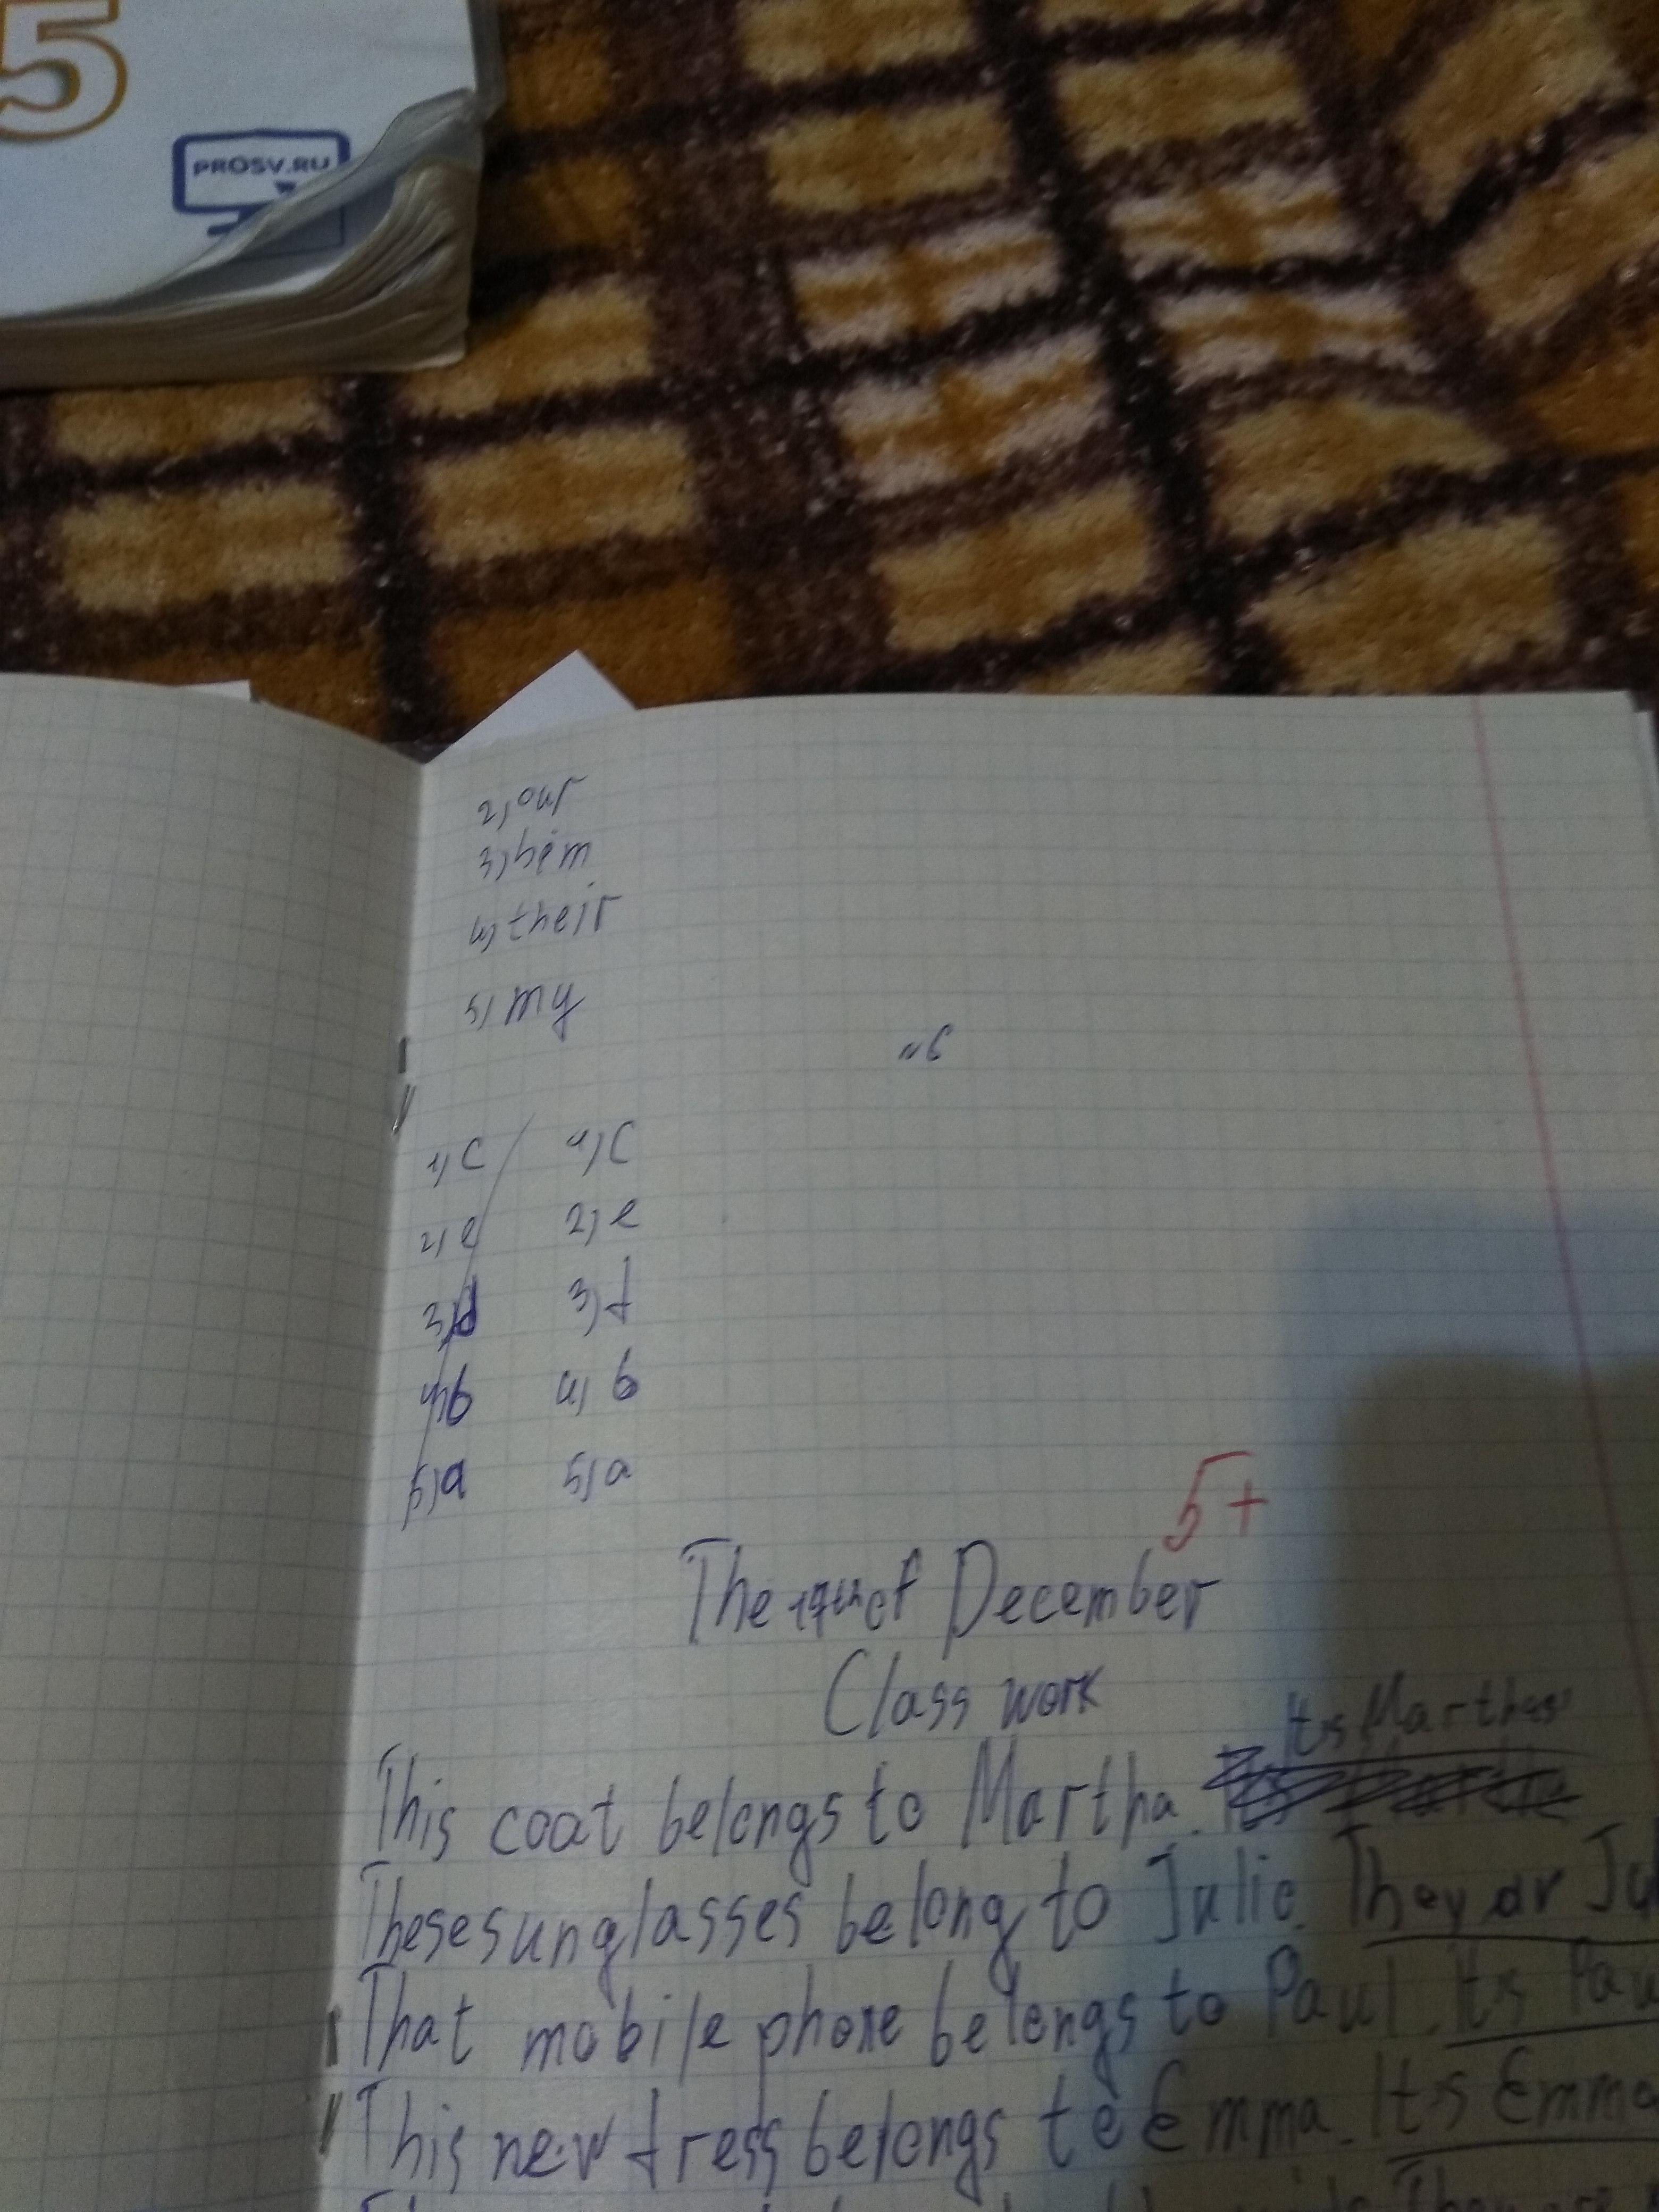 5
PROSV.RU
2) our
3) him
4) their
5) my
№6
1) c 1) c
2) e 2) e
3) d 3) d
4) b 4) b
5) a 5) a
5+
The of December
Class work
It's Martha's
This coat belongs to Martha.
These sunglasses belong to Julie. They ar Jul
That mobile phone belongs to Paul. It's Pau
This new dress belongs to Emma. It's Emma